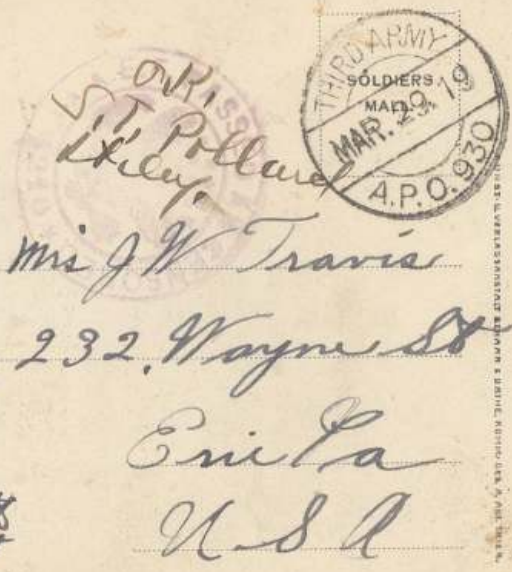 THIRD ARMY
SOLDIERS
MAIL.
MAR. 29. 19
A.P.O. 930
O.K.
S.T. Pollard
Mrs J W Travis
232, Wayne St
Erie Pa
U S A